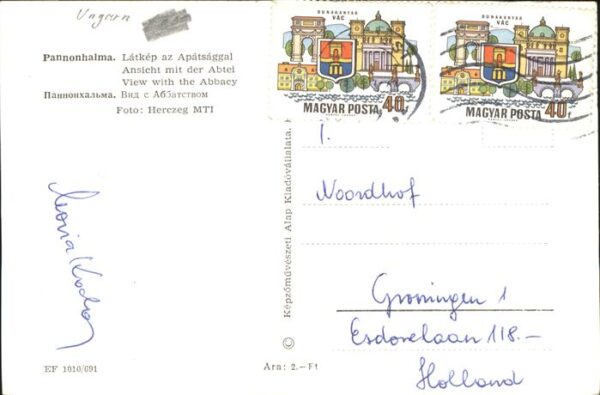 Ungarn
Pannonhalma. Látkép az Apátsággal
Ansicht mit der Abtei
View with the Abbacy
Паннонхальма. Вид с Аббатством
Foto: Herczeg MTI
EF 1010/691
© Képzőművészeti Alap Kiadóvállalata,
Ára: 2.— Ft
DUNAKANYAR
VÁC
MAGYAR POSTA 40f
DUNAKANYAR
VÁC
MAGYAR POSTA 40f
Noordhof
Groningen 1
Esdorelaan 118.-
Holland